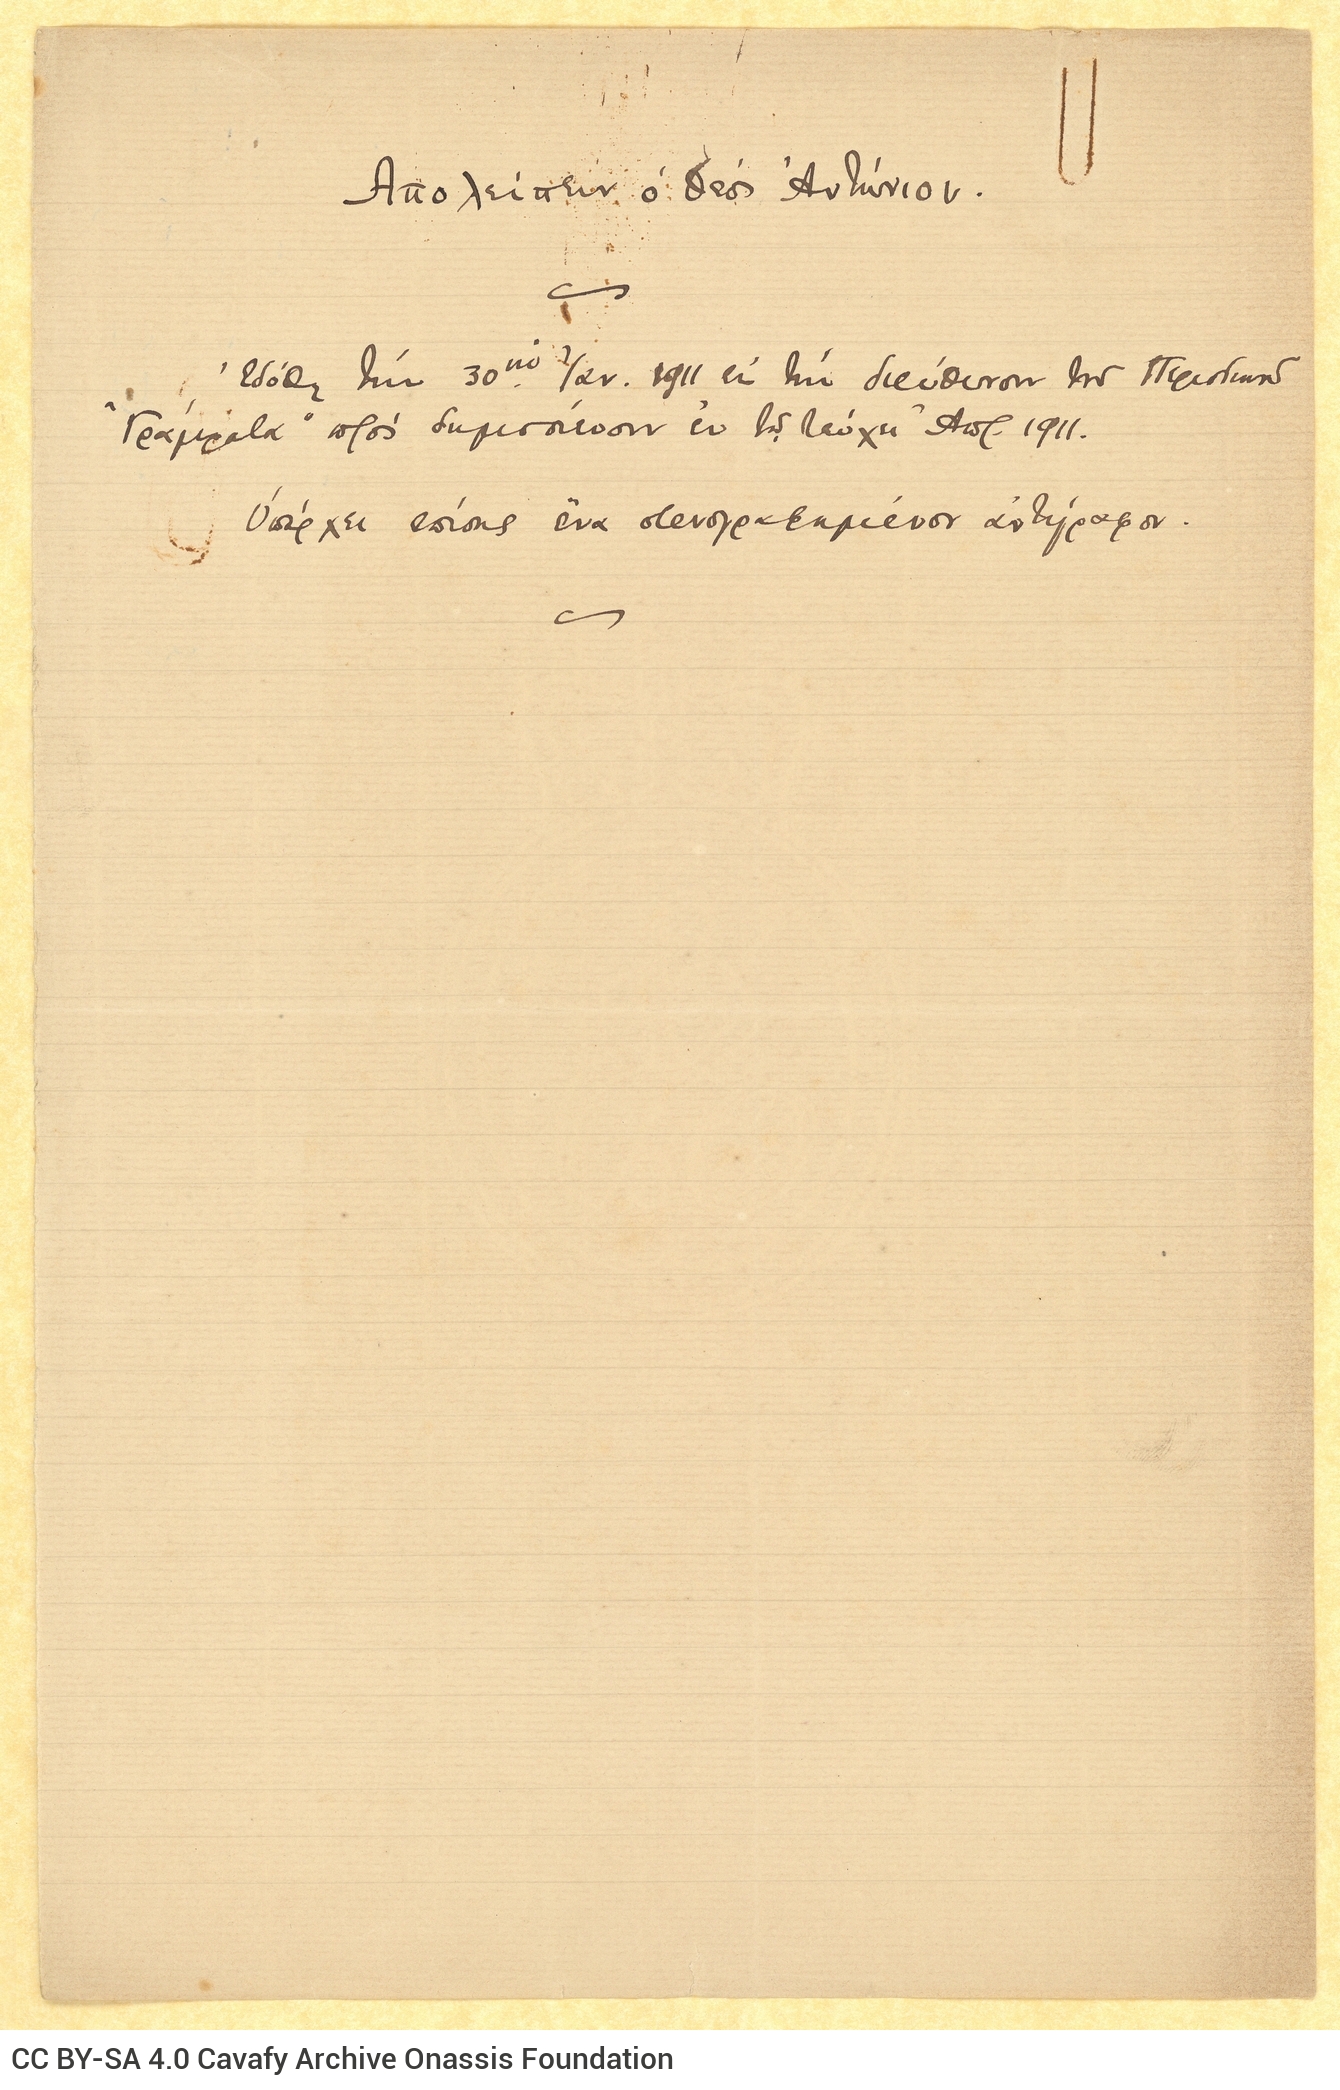 Απολείπειν ὁ θεὸς Ἀντώνιον.
Ἐδόθη τὴν 30ὴν Ἰαν. 1911 εἰς τὴν διεύθυνσιν τοῦ Περιοδικοῦ
"Γράμματα" πρὸς δημοσίευσιν ἐν τῷ τεύχει Ἀπρ. 1911.
Ὑπάρχει επίσης ἕνα στενογραφημένον ἀντίγραφον.
CC BY-SA 4.0 Cavafy Archive Onassis Foundation